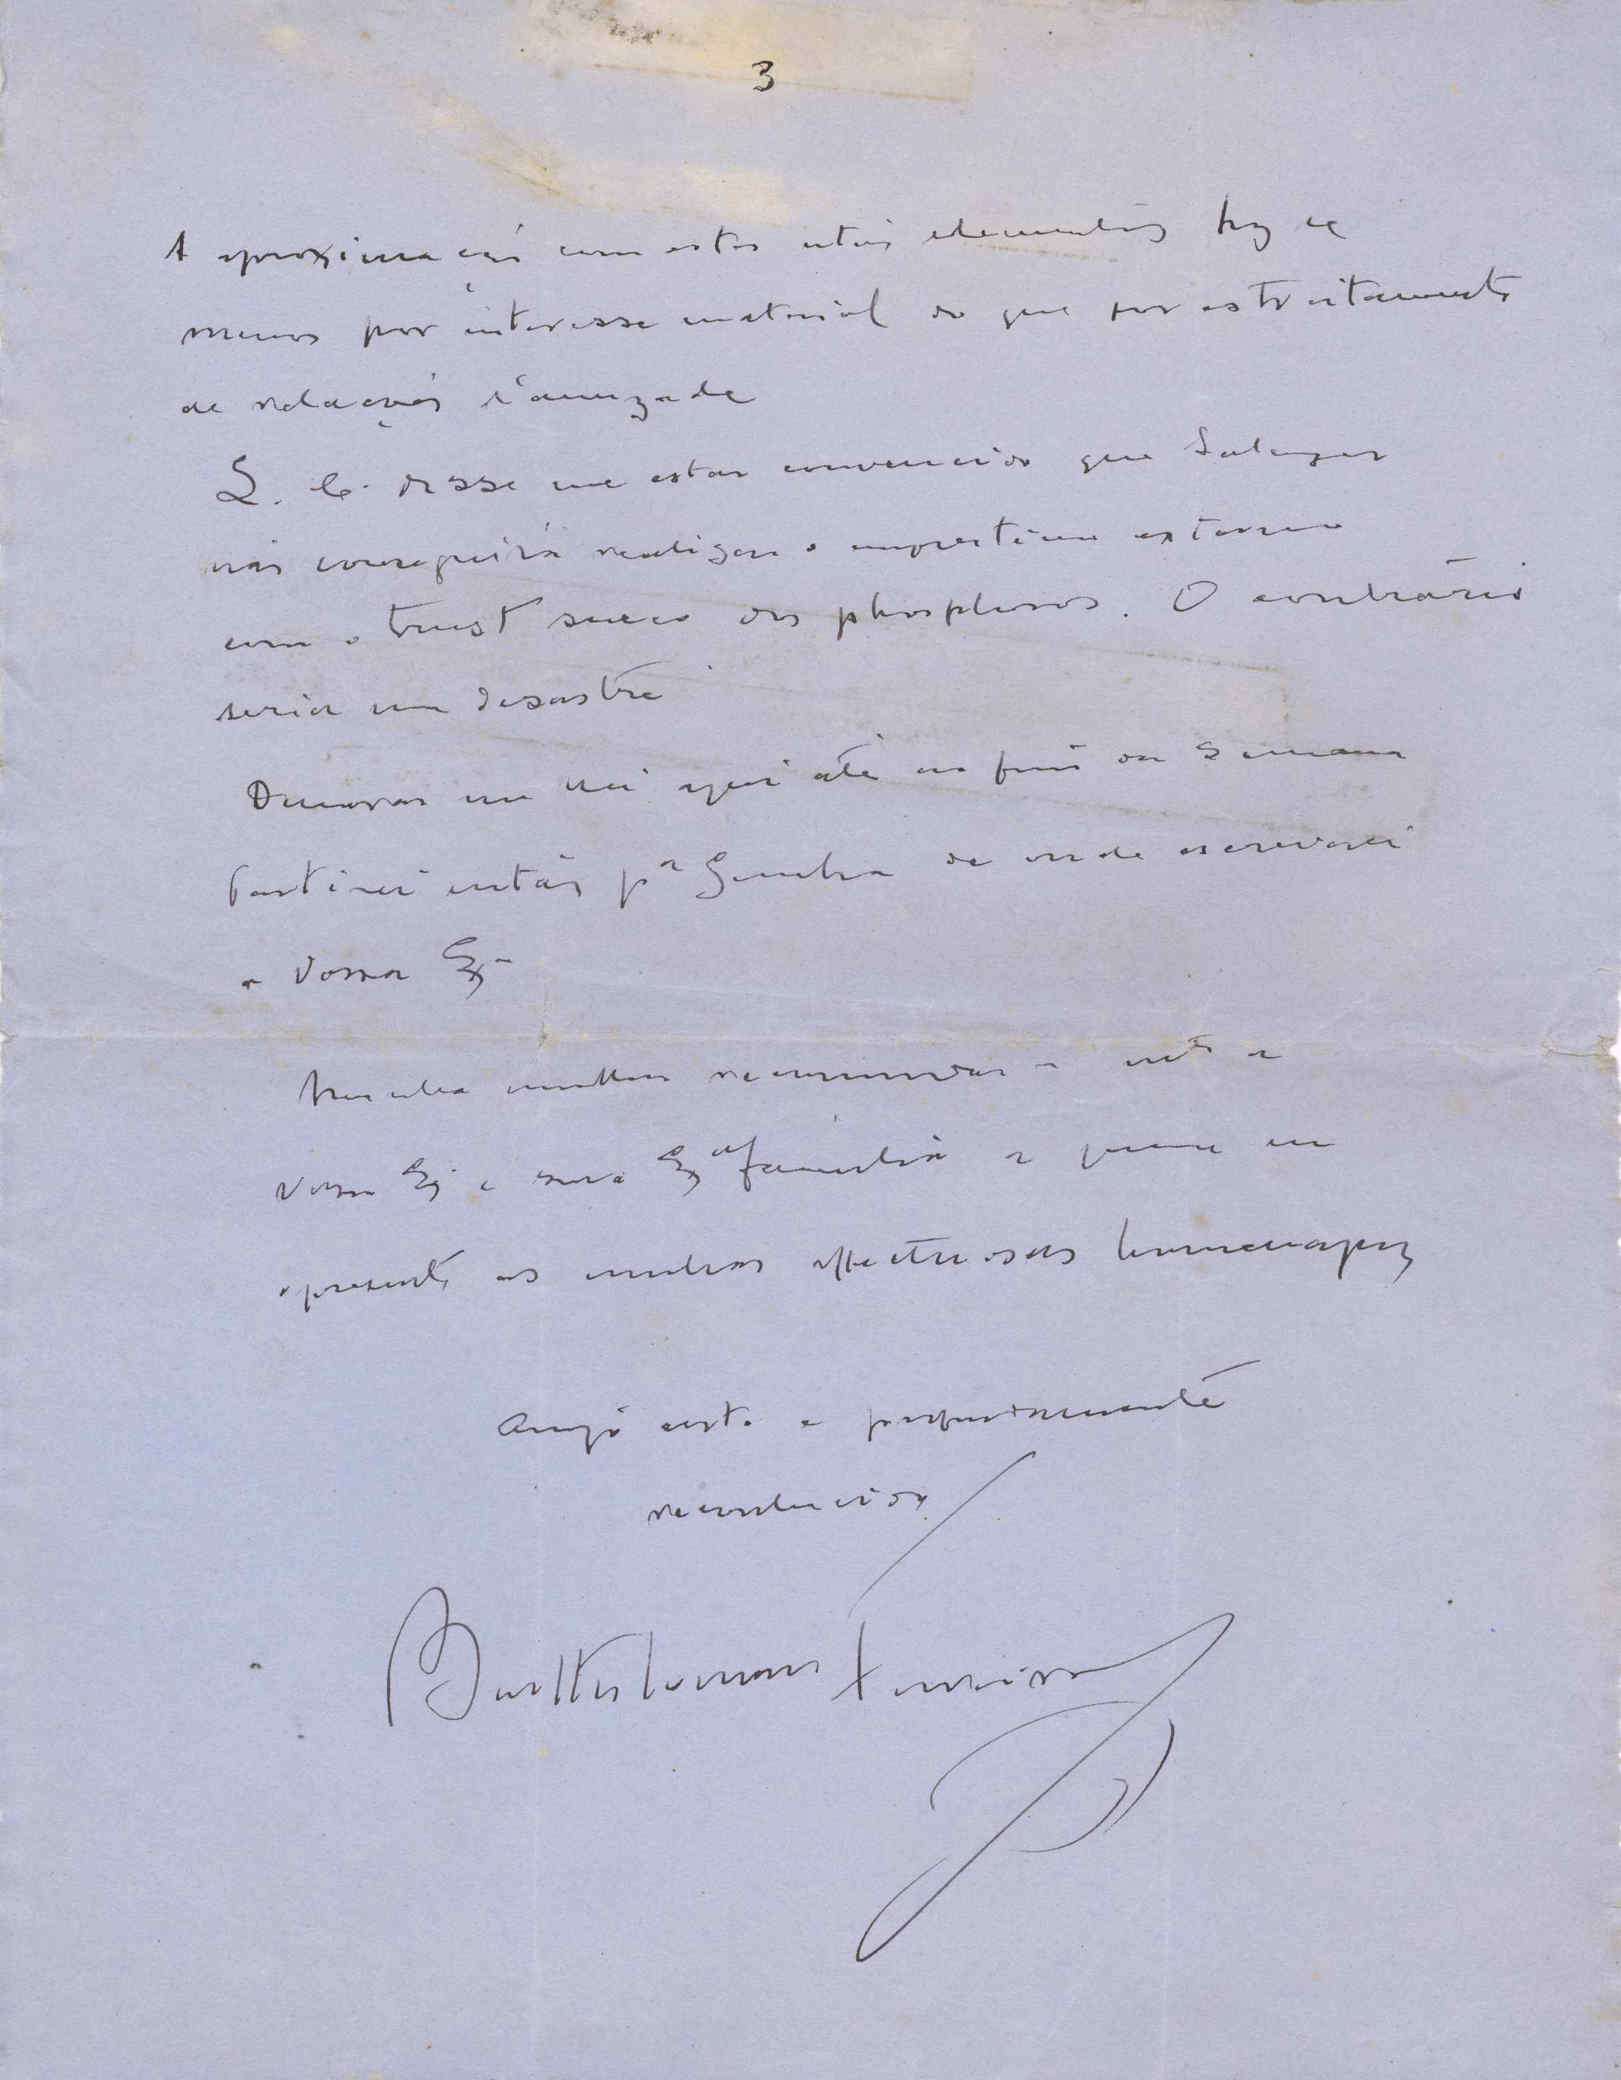 3
A aproximação com estes uteis elementos fez se
menos por interesse material do que por estreitamento
de relações d'amizade
L. C. disse me estar convencido que Salazar
não conseguirá realizar o emprestimo externo
com o trust sueco dos phosphoros. O contrário
seria um desastre
Demorar me hei aqui até ao fim da semana
Partirei então pª Genebra de onde escreverei
a Vossa Exª
minha mulher recommenda-se mtº a
Vossa Exª e sua Exª familia a quem eu
apresento as minhas affectuosas homenagens
Amigo certo e profundamente
reconhecido
Bartholomeu Ferreira